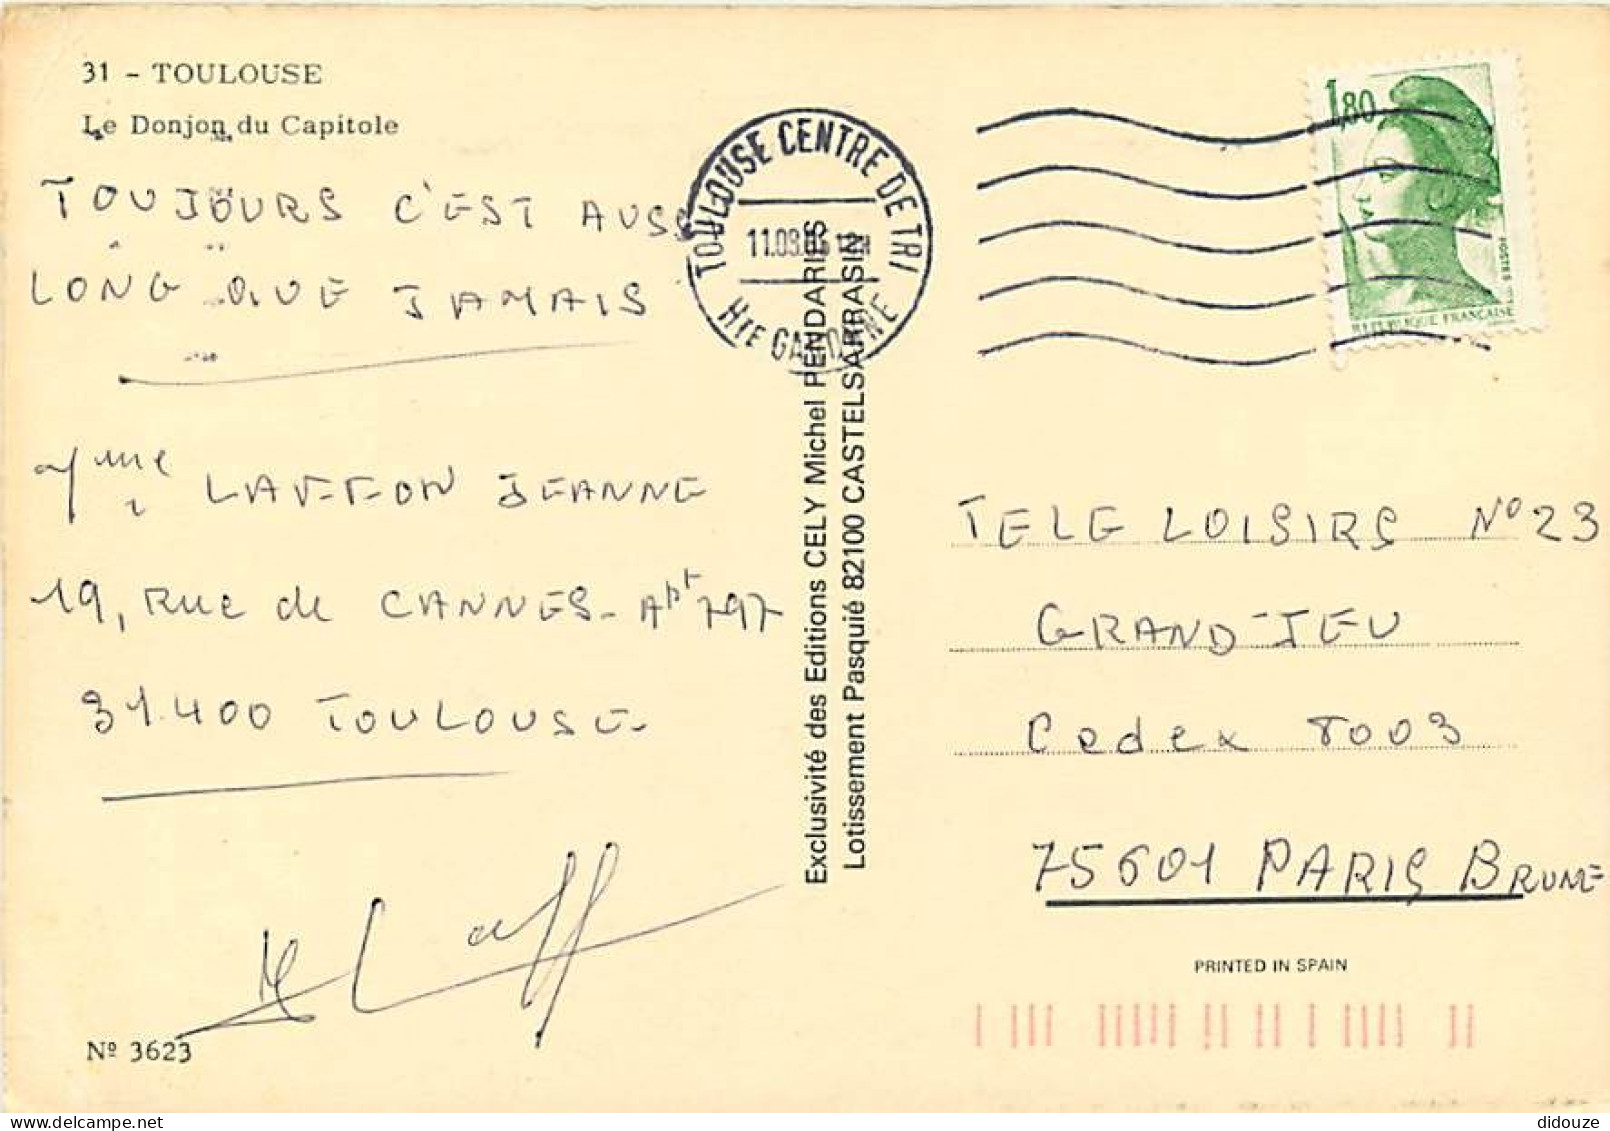 31 - TOULOUSE
Le Donjon du Capitole
TOUJOURS C'EST AUSSI
LONG QUE JAMAIS
Mme LAFFON JEANNE
19, Rue de CANNES - Apt 797
31.400 TOULOUSE
Nº 3623
TOULOUSE CENTRE DE TRI
Hte GARONNE
Exclusivité des Editions CELY Michel PENDARIES
Lotissement Pasquié 82100 CASTELSARRASIN
1,80
POSTES
REPUBLIQUE FRANCAISE
TELE LOISIRS Nº 23
GRAND-JEU
Cedex 8003
75601 PARIS BRUNE
PRINTED IN SPAIN
didouze